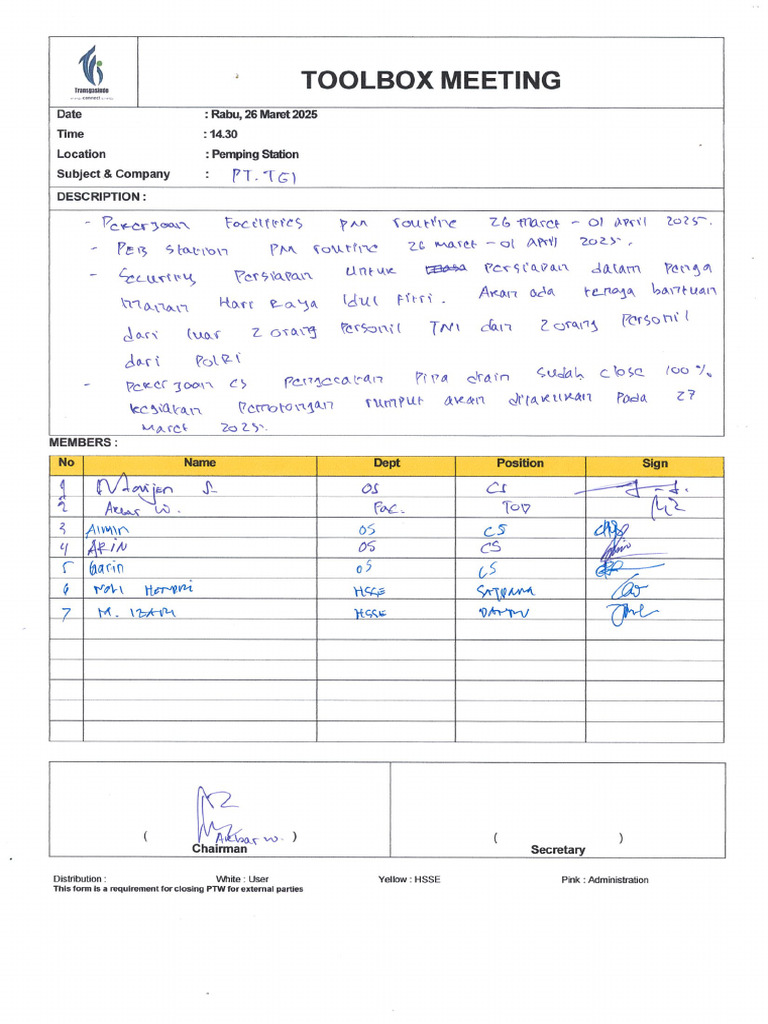 Transgasindo
TOOLBOX MEETING
Date : Rabu, 26 Maret 2025
Time : 14.30
Location : Pemping Station
Subject & Company : PT. TGI
DESCRIPTION :
- Pekerjaan Facilities PM routine 26 maret - 01 April 2025.
- PEB Station PM routine 26 maret - 01 April 2025.
- Security Persiapan untuk Persiapan dalam Penga
manan Hari Raya Idul Fitri. Akan ada tenaga bantuan
dari luar 2 orang Personil TNI dan 2 orang Personil
dari POLRI
- Pekerjaan CS Pengecatan Pipa drain sudah close 100 %
kegiatan Pemotongan rumput akan dilakukan Pada 27
Maret 2025.
MEMBERS :
No Name Dept Position Sign
1 S OS CS
2 Akbar W. Fac. TOD
3 Aimin OS CS
4 ARIN OS CS
5 Garin OS CS
6 Novi Hendri HSSE
7 M. IZARI HSSE DANRU
( Akbar W. ) ( )
Chairman Secretary
Distribution : White : User Yellow : HSSE Pink : Administration
This form is a requirement for closing PTW for external parties